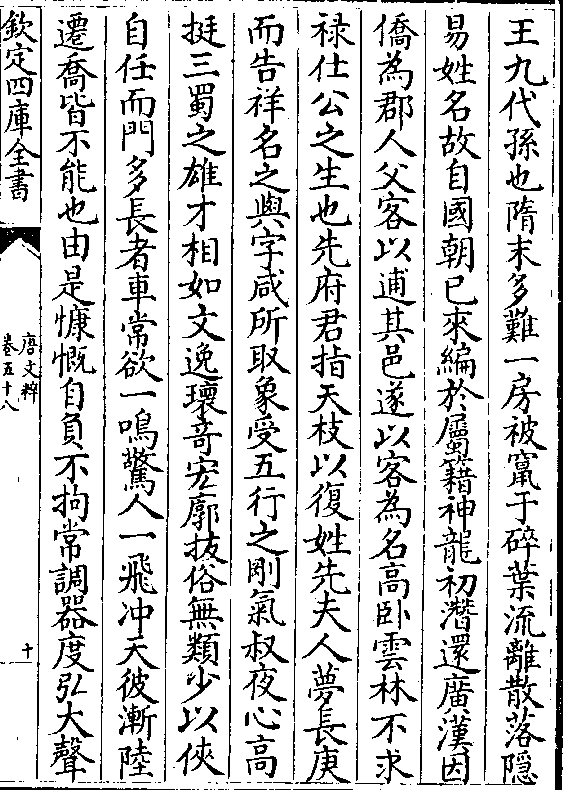 王九代孫也隋末多難一房被竄于碎葉流離散落隱
易姓名故自國朝已來編於屬籍神龍初潛還廣漢因
僑為郡人父客以逋其邑遂以客為名高卧雲林不求
禄仕公之生也先府君指天枝以復姓先夫人夢長庚
而告祥名之與字咸所取象受五行之剛氣叔夜心高
挺三蜀之雄才相如文逸瓌奇宏廓拔俗無類少以俠
自任而門多長者車常欲一鳴驚人一飛冲天彼漸陸
遷喬皆不能也由是慷慨自負不拘常調器度弘大聲
欽定四庫全書
唐文粹
卷五十八
十